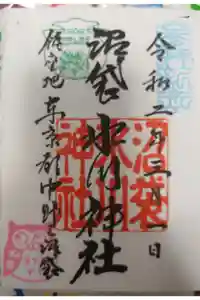 令和二年三月一日
沼袋 氷川神社
鎮座地 東京都中野区沼袋
沼袋
氷川
神社